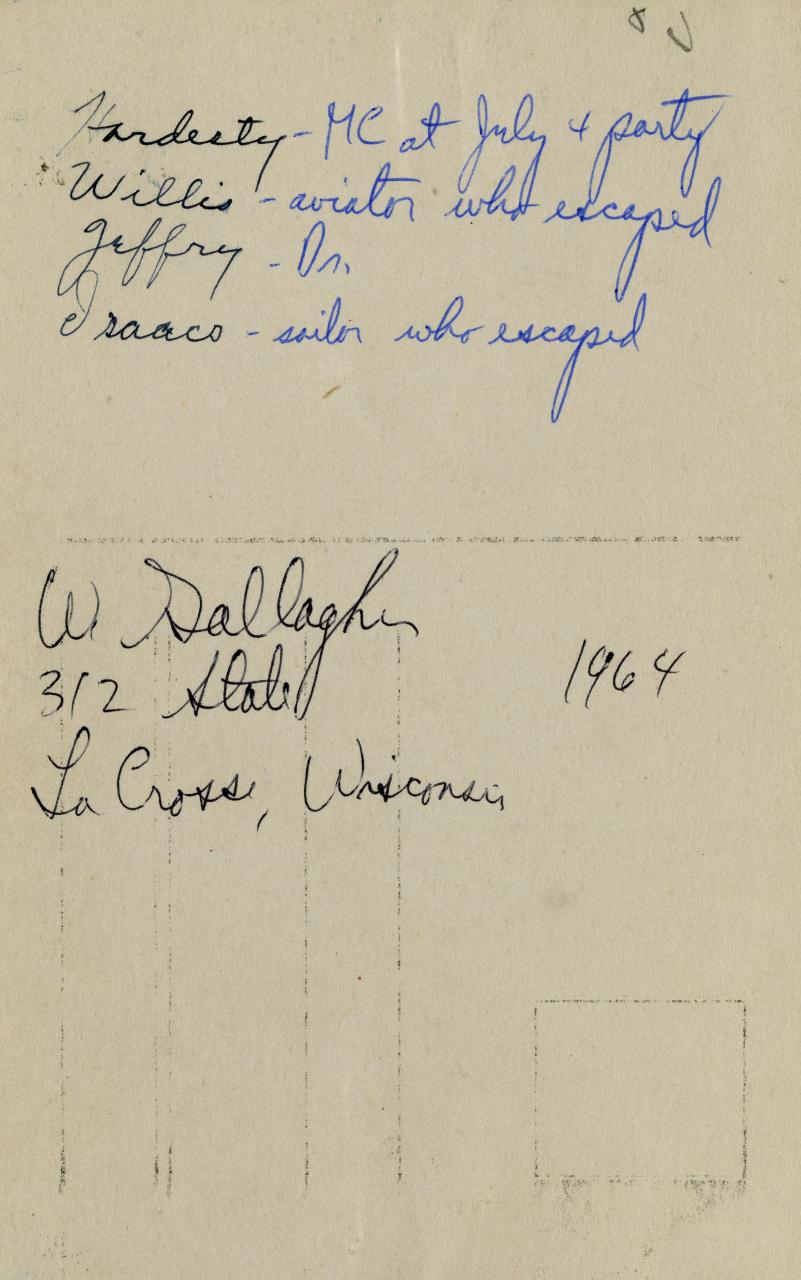 Hardesty - MC at July 4 party
Willis - aviator who escaped
Jeffry - Dr.
Isaacs - sailor who escaped
W. Gallagher
312 State
1964
La Crosse, Wisconsin